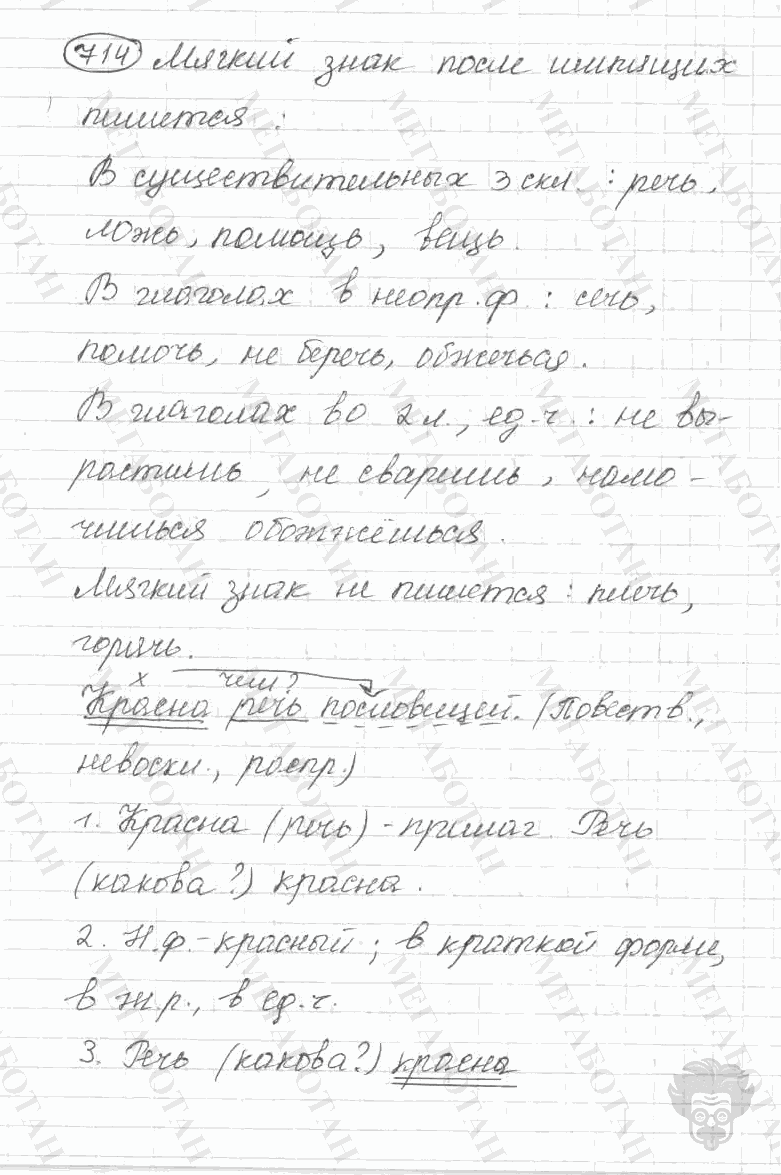 714 Мягкий знак после шипящих
пишется:
В существительных 3 скл.: речь,
ложь, помощь, вещь.
В глаголах в неопр. ф: сечь,
помочь, не беречь, обжечься.
В глаголах во 2 л., ед. ч.: не вы-
растишь, не сваришь, намо-
чишься обожжёшься.
Мягкий знак не пишется: плечь,
горячь.
х чем?
Красна речь пословицей. (Повеств.,
невоскл., распр.)
1. Красна (речь) - прилаг. Речь
(какова?) красна.
2. Н.ф.- красный; в краткой форме,
в ж.р., в ед.ч.
3. Речь (какова?) красна
МЕГАБОТАН